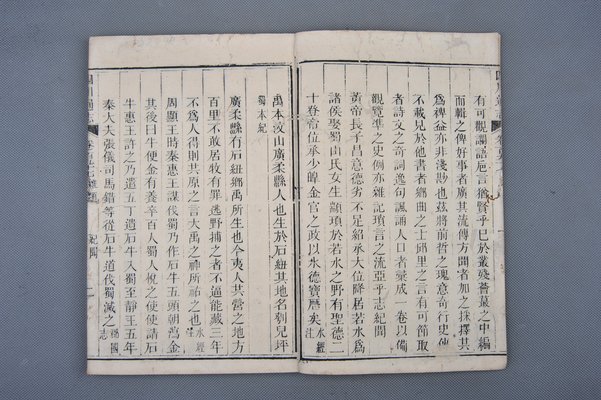 有可觀讕語巵言猶賢乎已於叢殘薈蕞之中編
而輯之俾好事者廣其流傳方聞者加之採擇其
爲裨益亦非淺尠也茲將前哲之瑰意奇行史傳
不載見於他書者鄉曲之士邱里之言有可節取
者詩文之奇詞逸句諷誦人口者彙成一卷以備
觀覽準之史例亦雜記瑣言之流亞乎志紀聞
黃帝長子昌意德劣不足紹承大位降居若水爲
諸侯娶蜀山氏女生顓頊於若水之野有聖德二
十登帝位承少皥金官之政以水德寶曆矣水經注
禹本汶山廣柔縣人也生於石紐其地名刳兒坪
蜀本紀
廣柔縣有石紐鄉禹所生也今夷人共營之地方
百里不敢居牧有罪逃野捕之者不逼能藏三年
不爲人得則共原之言大禹之神所祐之也水經注
周顯王時秦惠王謀伐蜀乃作石牛五頭朝瀉金
其後曰牛便金有養卒百人蜀人悅之使使請石
牛惠王許之乃遣五丁迎石牛入蜀至靜王五年
秦大夫張儀司馬錯等從石牛道伐蜀滅之
四川通志
紀聞
二